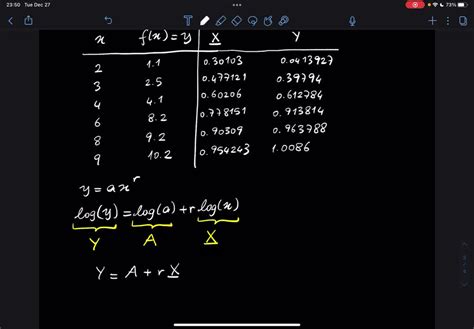 23:50 Tue Dec 27
73%
x f(x) = y X Y
2 1.1 0.30103 0.0413927
3 2.5 0.477121 0.39794
4 4.1 0.60206 0.612784
6 8.2 0.778151 0.913814
8 9.2 0.90309 0.963788
9 10.2 0.954243 1.0086
y = a x^r
log(y) = log(a) + r log(x)
Y A X
Y = A + r X